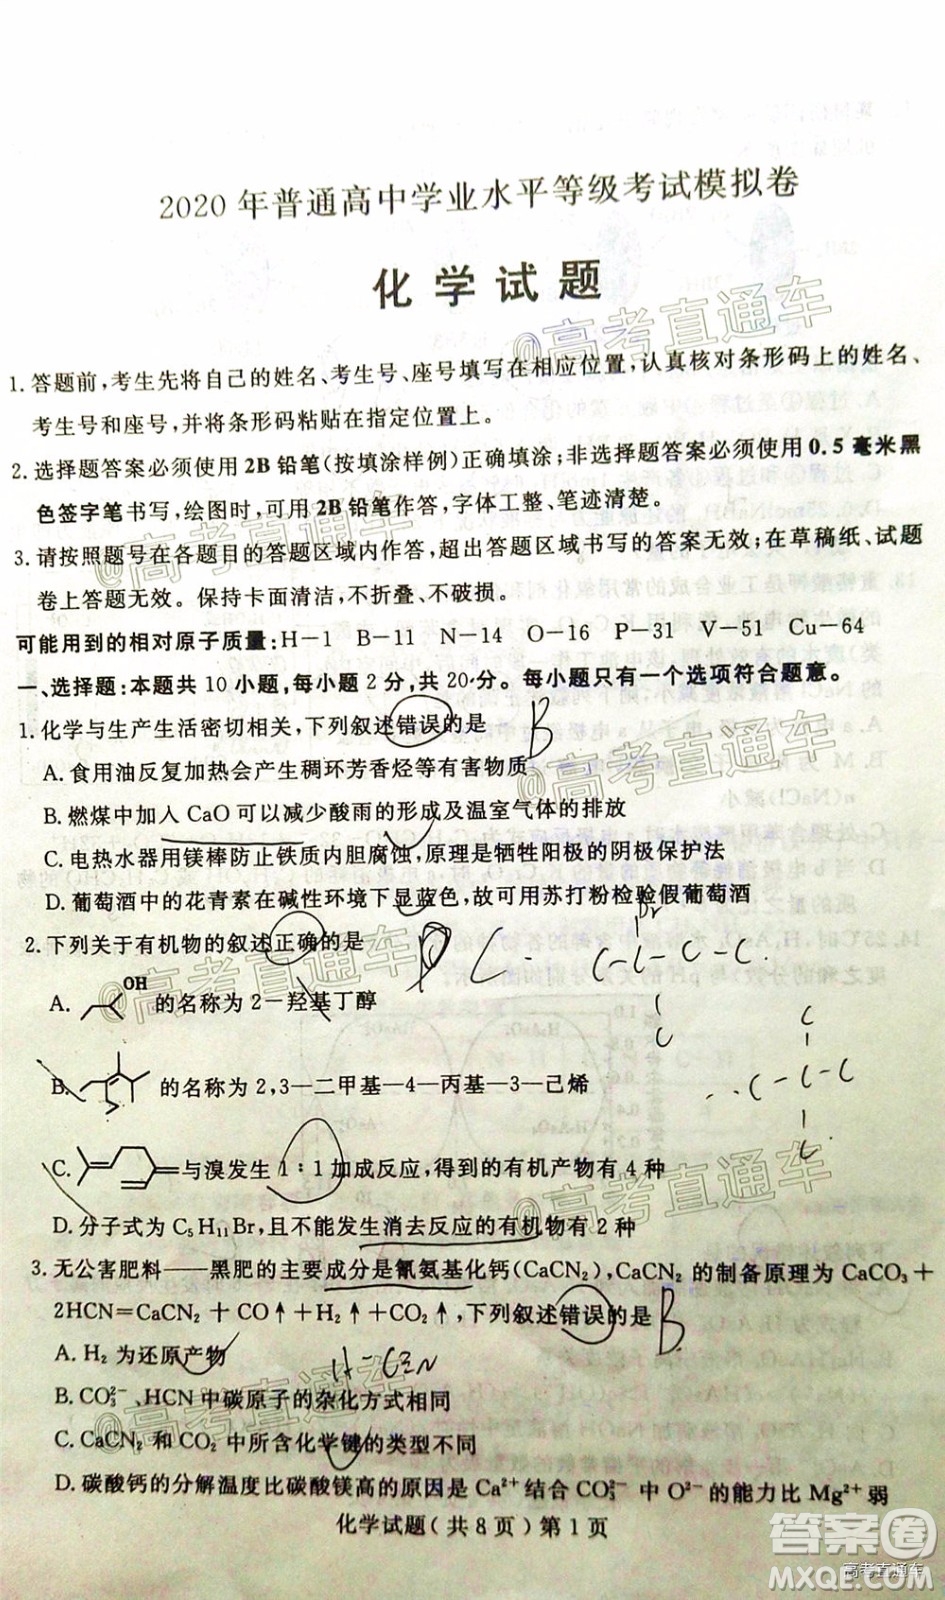 2020 年普通高中学业水平等级考试模拟卷
化学试题
@高考直通车
1. 答题前,考生先将自己的姓名、考生号、座号填写在相应位置,认真核对条形码上的姓名、
考生号和座号,并将条形码粘贴在指定位置上。
2. 选择题答案必须使用 2B 铅笔(按填涂样例)正确填涂;非选择题答案必须使用 0.5 毫米黑
色签字笔书写,绘图时,可用 2B 铅笔作答,字体工整、笔迹清楚。
@高考直通车
3. 请按照题号在各题目的答题区域内作答,超出答题区域书写的答案无效;在草稿纸、试题
卷上答题无效。保持卡面清洁,不折叠、不破损。
可能用到的相对原子质量:H-1 B-11 N-14 O-16 P-31 V-51 Cu-64
一、选择题:本题共 10 小题,每小题 2 分,共 20 分。每小题只有一个选项符合题意。
1. 化学与生产生活密切相关,下列叙述错误的是 B
@高考直通车
A. 食用油反复加热会产生稠环芳香烃等有害物质
B. 燃煤中加入 CaO 可以减少酸雨的形成及温室气体的排放
C. 电热水器用镁棒防止铁质内胆腐蚀,原理是牺牲阳极的阴极保护法
D. 葡萄酒中的花青素在碱性环境下显蓝色,故可用苏打粉检验假葡萄酒
2. 下列关于有机物的叙述正确的是
@高考直通车
A. OH 的名称为 2-羟基丁醇
B. 的名称为 2,3-二甲基-4-丙基-3-己烯
C. 与溴发生 1∶1 加成反应,得到的有机产物有 4 种
@高考直通车
D. 分子式为 C₅H₁₁Br,且不能发生消去反应的有机物有 2 种
3. 无公害肥料——黑肥的主要成分是氰氨基化钙(CaCN₂),CaCN₂ 的制备原理为 CaCO₃+
2HCN=CaCN₂+CO↑+H₂↑+CO₂↑,下列叙述错误的是 B
A. H₂ 为还原产物
H-C≡N
@高考直通车
B. CO₃²⁻、HCN 中碳原子的杂化方式相同
C. CaCN₂ 和 CO₂ 中所含化学键的类型不同
D. 碳酸钙的分解温度比碳酸镁高的原因是 Ca²⁺结合 CO₃²⁻ 中 O²⁻的能力比 Mg²⁺弱
化学试题(共 8 页)第 1 页
答案圈
高考直通车
MXQE.COM